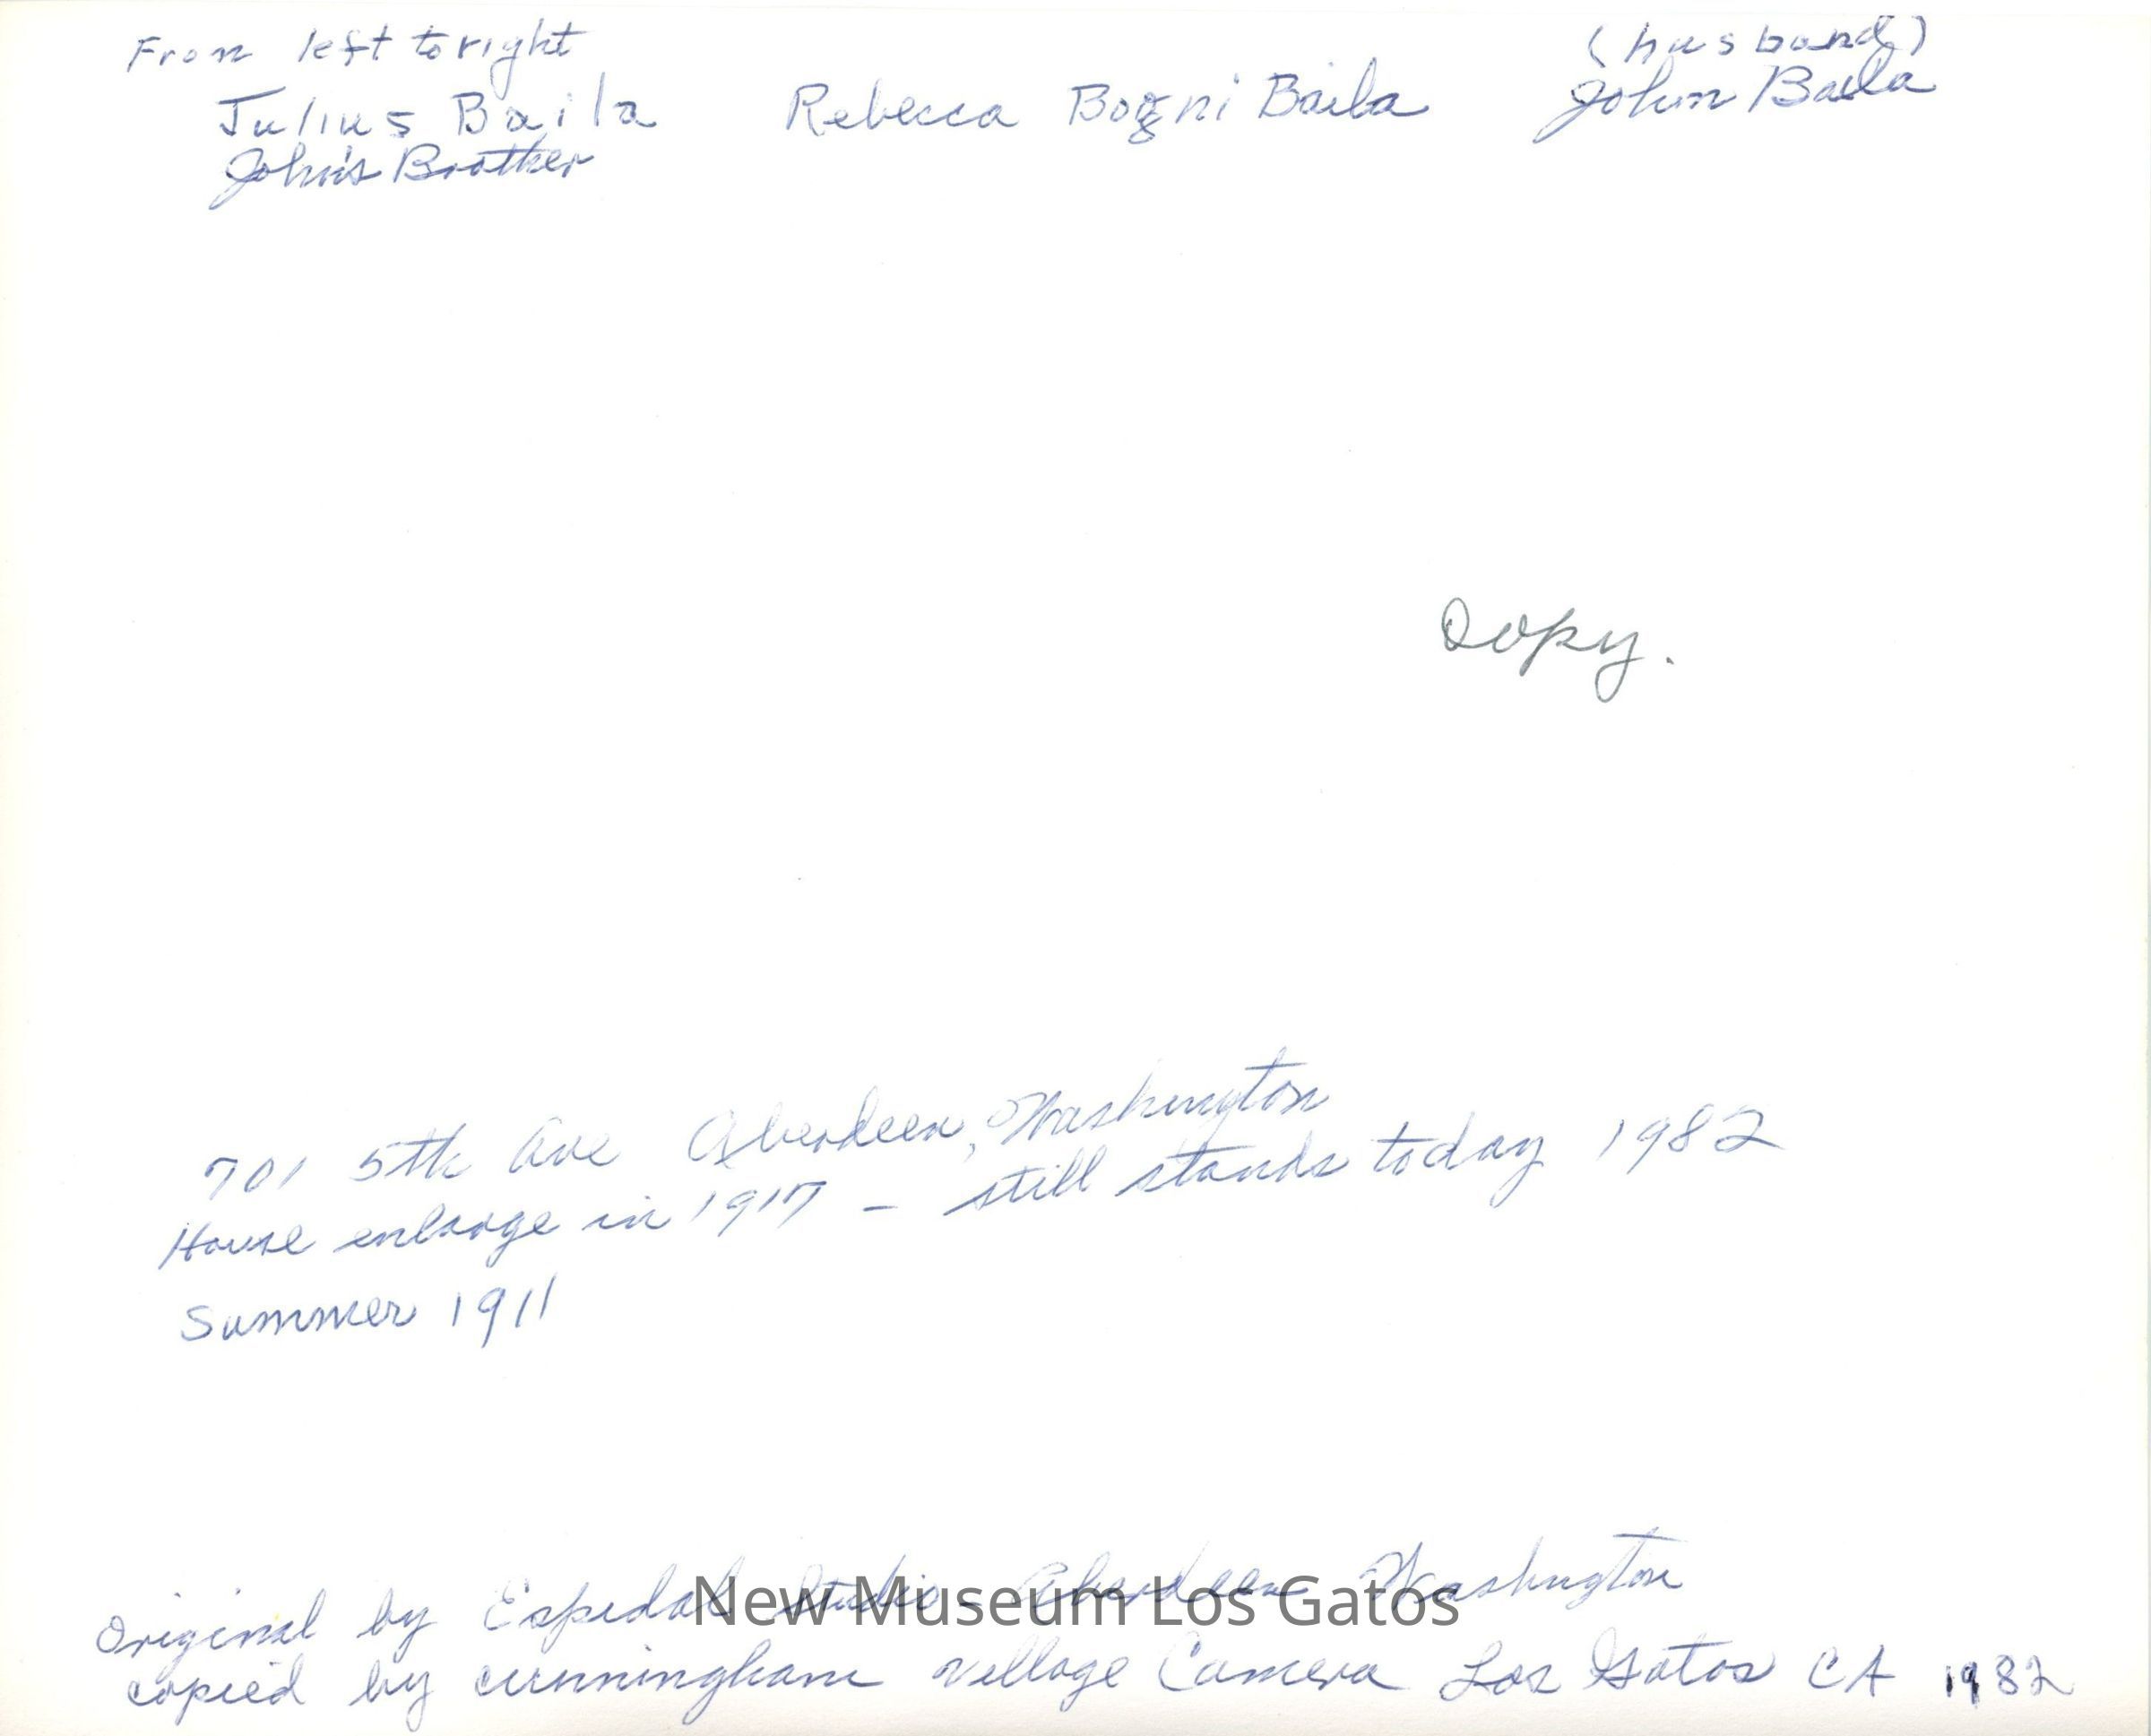 From left to right
(husband)
Julius Baila Rebecca Bogni Baila John Baila
John's Brother
Copy.
701 5th Ave Aberdeen, Washington
House enlarge in 1917 - still stands today 1982
Summer 1911
Original by Espedal Studio - Aberdeen Washington
New Museum Los Gatos
copied by Cunningham Village Camera Los Gatos CA 1982